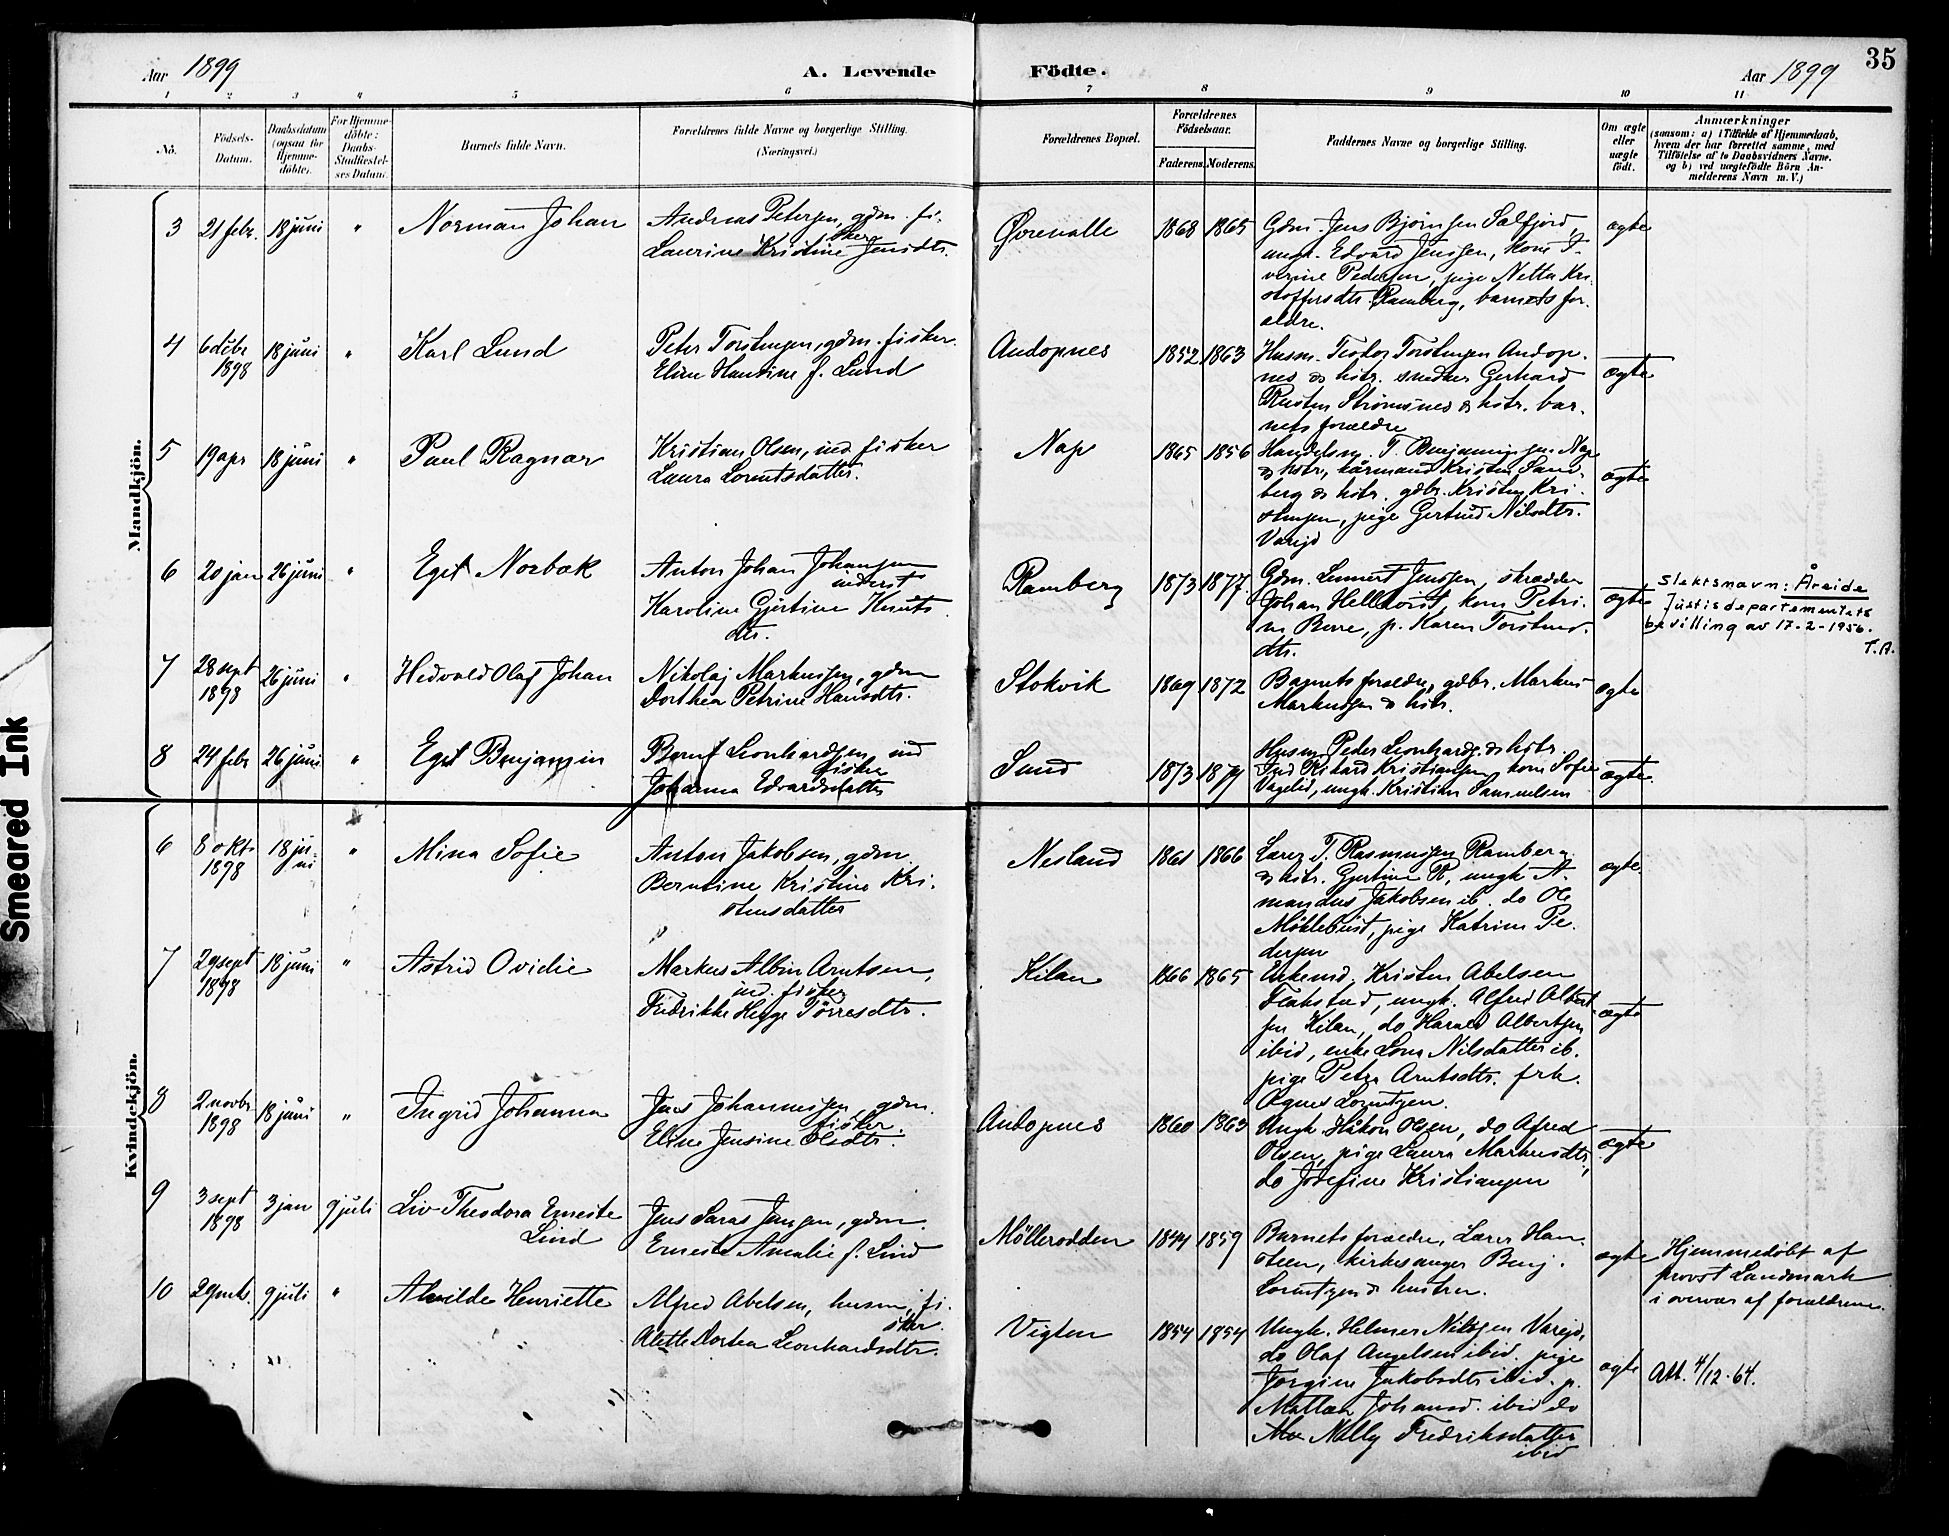 35
Aar 1899
A. Levende
Födte.
Aar 1899
1 2 3 4 5 6 7 8 9 10 11
No.
Födsels-
Datum.
Daabsdatum
(ogsaa for
Hjemme-
döbte).
For Hjemme-
döbte:
Daabs-
Stadfæstel-
ses Datum.
Barnets fulde Navn.
Forældrenes fulde Navne og borgerlige Stilling.
(Næringsvei.)
Forældrenes Bopæl.
Forældrenes
Födselsaar.
Faderens. Moderens.
Faddernes Navne og borgerlige Stilling.
Om ægte
eller
uægte
födt.
Anmærkninger
(saasom: a) i Tilfælde af Hjemmedaab,
hvem der har forrettet samme, med
Tilföielse af to Daabsvidners Navne.
og b) ved uægtefödte Börn An-
melderens Navn m. V.)
Mandkjön.
3 21 febr. 18 juni " Norman Johan
Andreas Petersen, gdm. fi-
sker
Laurine Kristine Jensdtr.
Örenalle 1868 1865
Gdm. Jens Björnsen Salfjord,
ungk. Edvard Jenssen, kone I-
verine Pedersen, pige Netta Kri-
stoffersdtr. Ramberg, barnets for-
ældre.
ægte
4 6 debr 1898 18 juni " Karl Lund
Peter Torstensen, gdm. fisker.
Eline Hansine f. Lund
Andopnes 1852 1863
Husm. Teodor Torstensen Andop-
nes & hstr. snedker Gerhard
Rusten Strömsnes & hstr. bar-
nets forældre
ægte
5 19 apr 18 juni " Paul Ragnar
Kristian Olsen, ind. fisker
Laura Lorntsdatter.
Nap 1865 1856
Handelsm. T. Benjaminsen Nap
& hstr, kårmand Kristen Sand-
berg & hstr. gdbr. Kristen Kri-
stensen, pige Gertrud Nilsdtr.
Vareid
ægte
6 20 jan 26 juni " Egil Norbak
Anton Johan Johansen
inderst
Karoline Gjertine Knuts-
dtr.
Ramberg 1873 1877
Gdm. Lennert Jenssen, skrædder
Johan Hellkvist, kone Petri-
ne Berre, p. Karen Torstens-
dtr.
ægte
Slektsnavn: Åreide
Justisdepartementets
bevilling av 17-2-1956.
T.A.
7 28 sept 1898 26 juni " Hedvald Olaf Johan
Nikolaj Markussen, gdm
Dorthea Petrine Hansdtr.
Stokvik 1869 1872
Barnets forældre, gdbr. Markus
Markussen & hstr.
ægte
8 24 febr 26 juni " Egil Benjamin
Bernt Leonhardsen, ind
fisker
Johanna Edvardsdatter
Sund 1873 1874
Husm. Peder Leonhards. & hstr.
Ind Rikard Kristiansen, kone Sofie
ungk. Kristian Samuelsen
ægte
Kvindekjön.
6 8 okt. 1898 18 ju-
ni " Mina Sofie
Anton Jakobsen, gdm.
Berntine Kristine Kri-
stensdatter
Nesland 1861 1866
Lærer T. Rasmussen Ramberg
& hstr. Gjertine R, ungk A-
mandus Jakobsen ib. do Ole
Möklebust, pige Katrine Pe-
dersen
ægte.
7 29 sept 1898 18 juni " Astrid Ovidie
Markus Albin Arntsen,
ind. fisker
Fredrikke Hegge Törresdtr.
Kilan 1866 1865
Enkemd. Kristen Abelsen
Flakstad, ungk. Alfred Albert-
sen Kilan, do Harald Albertsen
ibid, enke Lona Nilsdatter ib.
pige Petra Arntsdtr. frk.
Agnes Lorntzen.
ægte
8 2 novbr 1898 18 juni " Ingrid Johanna
Jens Johannessen, gdm.
fisker.
Eline Jensine Olsdtr.
Andopnes 1860 1863
Ungk Håkon Olsen, do Alfred
Olsen, pige Laura Markusdtr,
do Josefine Kristiansen
ægte
9 3 sept 1898 3 jan 9 juli Liv Theodora Erneste
Lind
Jens Saras Jensen, gdm.
Erneste Amalie f. Lind
Möllerodden 1844 1859
Barnets forældre, Lærer Han-
steen, kirkesanger Benj.
Lorntzen & hustru.
ægte
Hjemmedöbt af
provst Landmark
i overvær af forældrene.
10 9 juli " Alvilde Henriette
Alfred Abelsen, husm, fi-
sker.
Alette Dortea Leonhardsdtr.
Vigten 1854 1854
Ungk. Helmer Nilssen Vareid,
do Olaf Angelsen ibid. pige
Jörgine Jakobsdtr ibid. p.
Mattea Johansd. ibid do
Nelly Fredriksdatter
ibid
ægte
Att. 4/12-64.
Smeared Ink